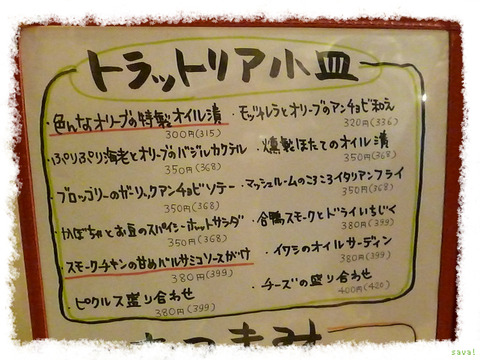 トラットリア小皿
・色んなオリーブの特製オイル漬
300円(315)
・ぷりぷり海老とオリーブのバジルカクテル
350円(368)
・ブロッコリーのガーリックアンチョビソテー
350円(368)
・かぼちゃとお豆のスパイシーホットサラダ
350円(368)
・スモークチキンの甘めバルサミコソースがけ
380円(399)
・ピクルス盛り合わせ
380円(399)
・モッツァレラとオリーブのアンチョビ和え
320円(336)
・燻製ほたてのオイル漬
350円(368)
・マッシュルームのころころイタリアンフライ
350円(368)
・合鴨スモークとドライいちじく
380円(399)
・イワシのオイルサーディン
380円(399)
・チーズの盛り合わせ
400円(420)
sava!